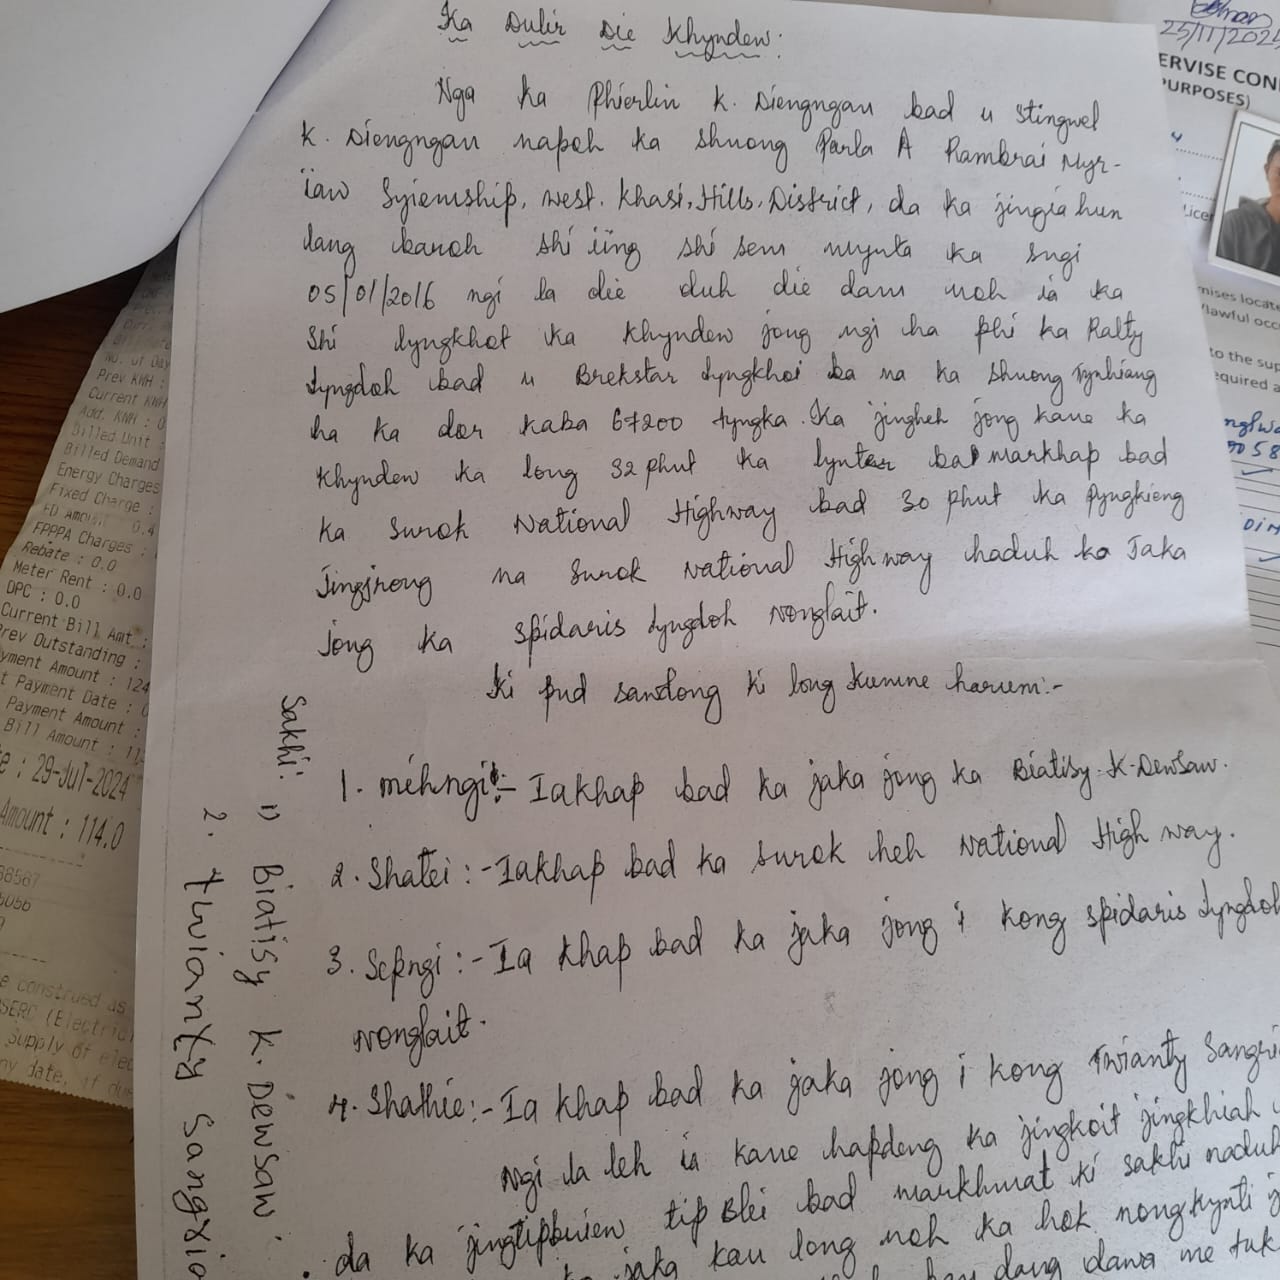 Ka Dulir Die Khyndew:
Nga ka Phierlin K. Diengngan bad u Stingwel
K. Diengngan napoh ka Shnong Parla A Rambrai Myr-
ïaw Syiemship, West. Khasi, Hills, District, da ka jingïa hun
lang baroh shi ïing shi sem mynta ka sngi
05/01/2016 ngi la die duh die dam noh ïa ka
Shi lyngkhot ka Khyndew jong ngi ha phi ka Ralty
Lyngdoh bad u Brekstar Lyngkhoi ba na ka Shnong Tynhiang
ha ka dor kaba 67200 tyngka. Ka jingheh jong kane ka
Khyndew ka long 32 phut ka lynter ba markhap bad
ka surok National Highway bad 30 phut ka Pyngkieng
Jingjrong na surok National Highway haduh ka Jaka
jong ka Spidaris Lyngdoh Nonglait.
Ki pud sawdong ki long kumne harum:-
1. mihngi:- Iakhap bad ka jaka jong ka Biatisy K. Dewsaw.
2. Shatei:- Iakhap bad ka surok heh National High way.
3. Sepngi:- Ia khap bad ka jaka jong i kong Spidaris Lyngdoh
Nonglait.
4. Shathie:- Ia khap bad ka jaka jong i kong Twianty
Ngi la leh ïa kane hapdeng ka jingkoit jingkhiah
da ka jingtipbriew tip Blei bad markhmat ki sakhi naduh
jaka kan long noh ka hok nongkynti
dang dawa me
Sakhi: 1) Biatisy K. Dewsaw
2. Twianty
25/11/202
ERVISE CON
PURPOSES)
mises locate
lawful occu
to the sup
equired a
No. of Day
Prev KWH :
Current KWH
Add. KWH : 0
Billed Unit :
Billed Demand
Energy Charges
Fixed Charge :
FD Amount 0.4
FPPPA Charges :
Rebate : 0.0
Meter Rent : 0.0
DPC : 0.0
Current Bill Amt :
Prev Outstanding :
yment Amount : 124
t Payment Date : 0
Payment Amount :
Bill Amount : 11
te : 29-Jul-2024
Amount : 114.0
68567
e construed as
SERC (Electric
Supply of elec
ny date, if due